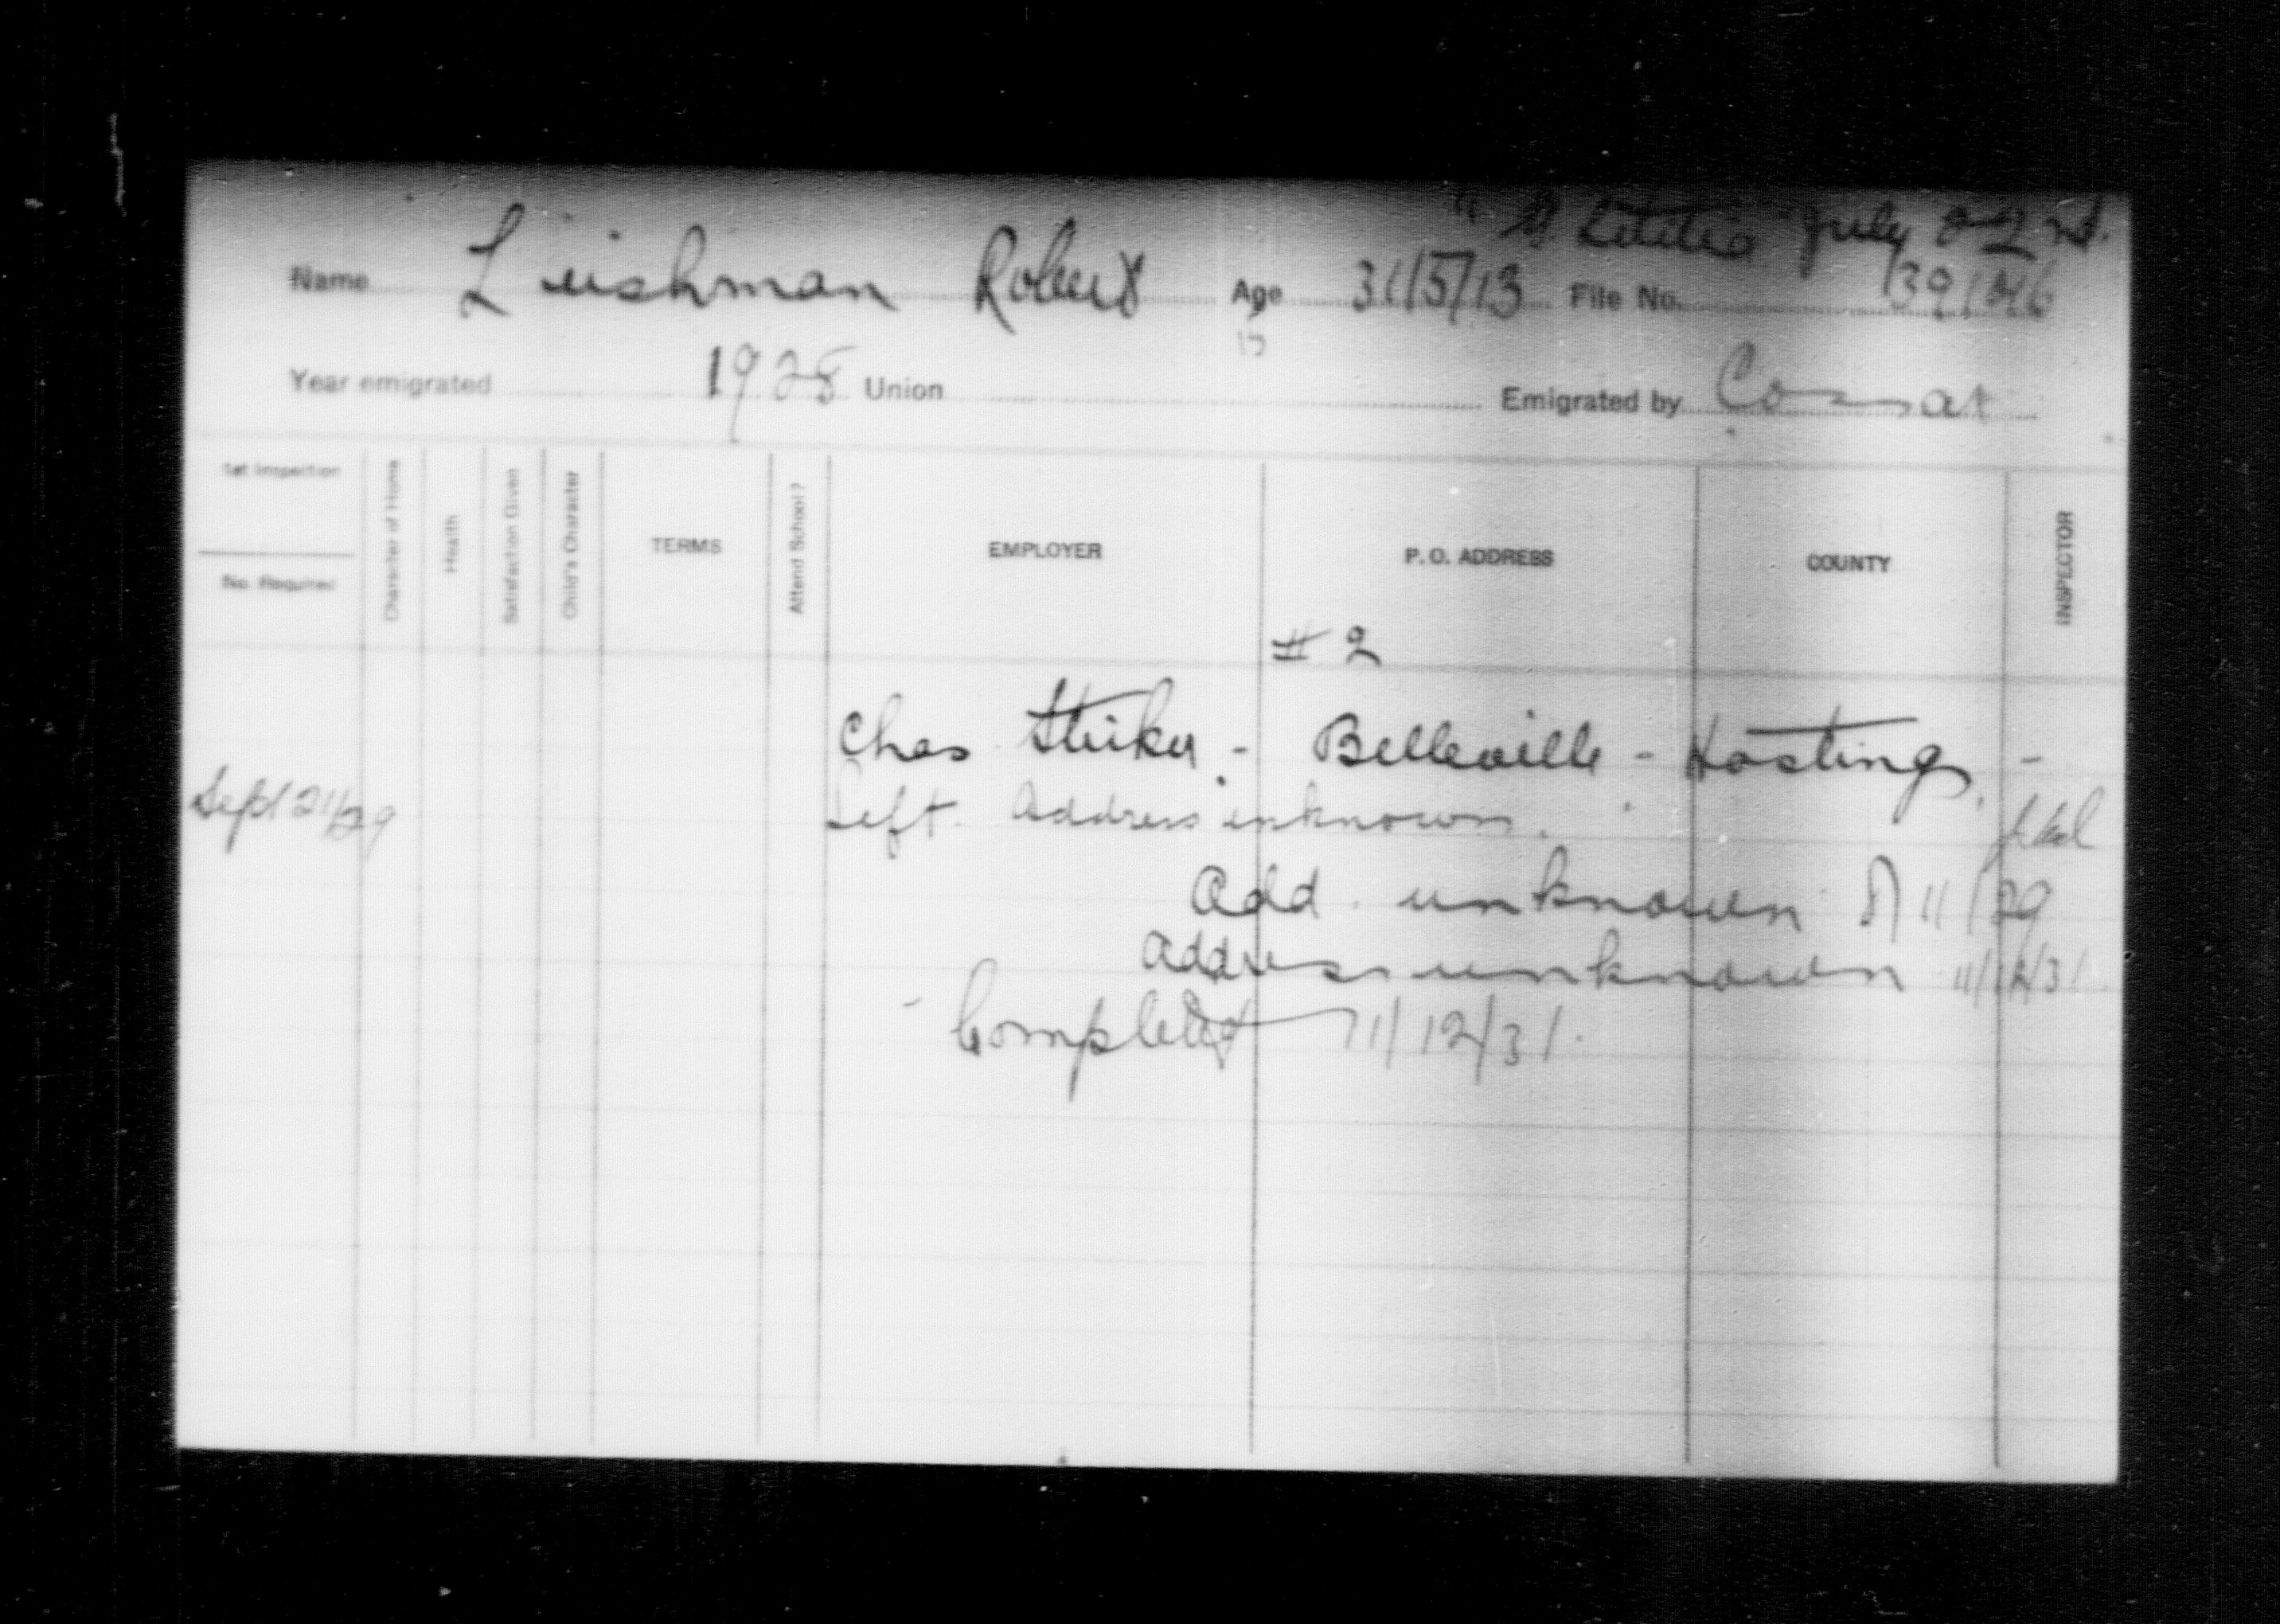 Letitia July 22nd.
Name Leishman Robert Age 31/5/13 File No.
15
Year emigrated 1928 Union Emigrated by Cossar
1st Inspection
No. Required
Character of Home
Health
Satisfaction Given
Child's Character
TERMS
Attend School?
EMPLOYER
P. O. ADDRESS
COUNTY
INSPECTOR
# 2
Chas Striker - Belleville - Hastings -
Sept 21/29 Left. Address unknown.
Add. unknown 11/29
Address unknown 11/12/31
Completed 11/12/31.